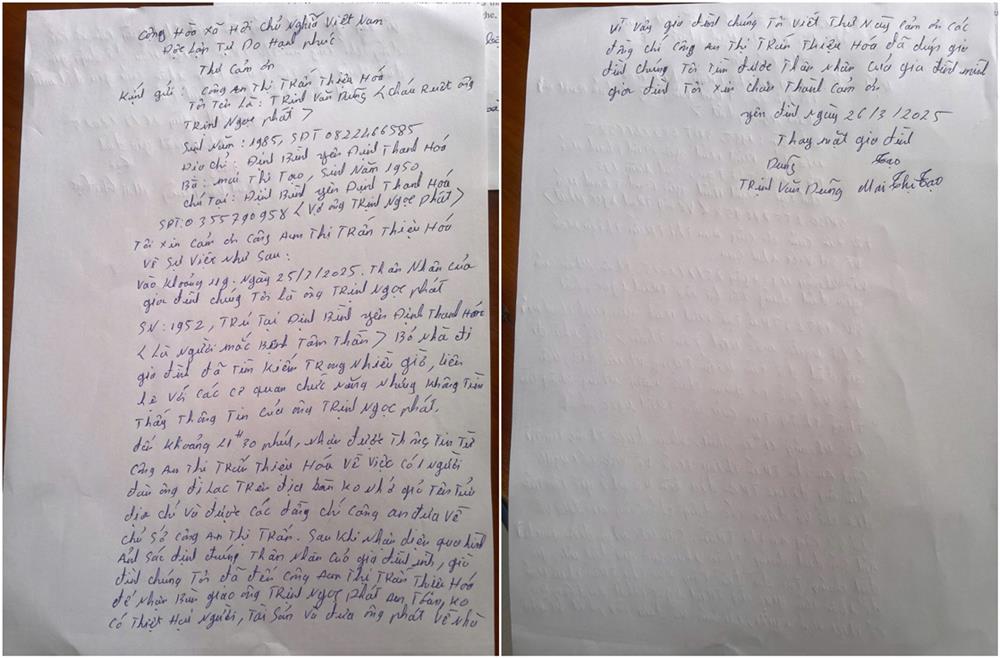 Cộng Hòa Xã Hội Chủ Nghĩa Việt Nam
Độc Lập Tự Do Hạnh phúc
Thư Cảm ơn
Kính gửi: Công An Thị Trấn Thiệu Hoá
Tôi Tên Là: Trịnh Văn Dũng < Cháu Ruột ông
Trịnh Ngọc phát >
Sinh Năm: 1985, SĐT 0822166585
Địa chỉ: Định Bình yên Định Thanh Hoá
Bà: mai Thị Tạo, Sinh Năm 1950
chú Tại: Định Bình yên Định Thanh Hoá
SĐT: 0355790958 < Vợ ông Trịnh Ngọc phát >
Tôi xin Cảm ơn Công An Thị Trấn Thiệu Hoá
Về Sự Việc Như Sau:
Vào Khoảng 11g. Ngày 25/2/2025. Thân Nhân Của
gia đình chúng Tôi là ông Trịnh Ngọc phát
SN: 1952, Trú Tại Định Bình yên Định Thanh Hoá
< Là Người mắc Bệnh Tâm Thần > Bỏ nhà đi
gia đình đã Tìm Kiếm Trong Nhiều giờ, liên
hệ Với các cơ quan chức năng Nhưng Không Tìm
Thấy Thông Tin Của ông Trịnh Ngọc phát.
đến Khoảng 21h30 phút, Nhận được Thông Tin Từ
Công An Thị Trấn Thiệu Hoá Về Việc Có 1 Người
đàn ông đi Lạc Trên địa bàn Ko Nhớ giờ Tên Tuổi
địa chỉ Và được các đồng chí Công an đưa Về
chủ Sở Công An Thị Trấn. Sau Khi Nhận diện qua hình
Ảnh Sác định đúng Thân Nhân Của gia đình mình, gia
đình chúng Tôi đã đến Công An Thị Trấn Thiệu Hoá
để Nhận Bàn giao ông Trịnh Ngọc phát An Toàn, Ko
Có Thiệt Hại Người, Tài Sản Và đưa ông phát Về Nhà
Vì Vậy gia đình chúng Tôi Viết Thư Này Cảm ơn Các
đồng chí Công An Thị Trấn Thiệu Hoá đã dúp gia
đình chúng Tôi Tìm được Thân Nhân Của gia đình mình
gia đình Tôi xin chân Thành Cảm ơn
yên định ngày 26/3/2025
Thay mặt gia đình
Dũng Tạo
Trịnh Văn Dũng Mai Thị Tạo